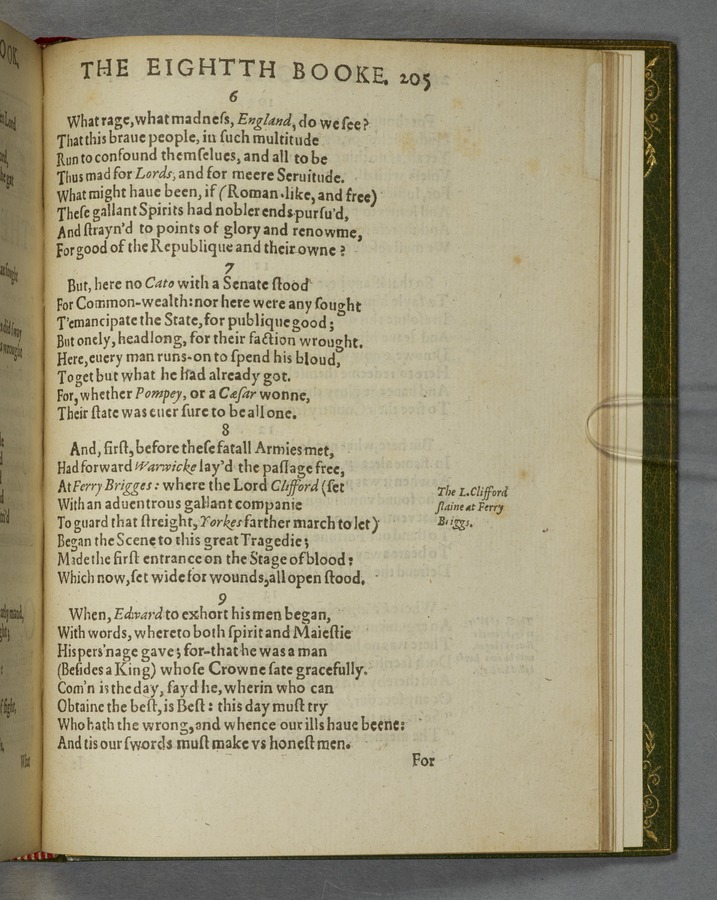 THE EIGHTTH BOOKE. 205
6
What rage, what madneſs, England, do we ſee?
That this braue people, in ſuch multitude
Run to confound themſelues, and all to be
Thus mad for Lords, and for meere Seruitude.
What might haue been, if (Roman-like, and free)
Theſe gallant Spirits had nobler ends purſu'd,
And ſtrayn'd to points of glory and renowme,
For good of the Republique and their owne?
7
But, here no Cato with a Senate ſtood
For Common-wealth: nor here were any ſought
T'emancipate the State, for publique good;
But onely, headlong, for their faction wrought.
Here, euery man runs-on to ſpend his bloud,
To get but what he had already got.
For, whether Pompey, or a Cæſar wonne,
Their ſtate was euer ſure to be all one.
8
And, firſt, before theſe fatall Armies met,
Had forward Warwicke lay'd the paſſage free,
At Ferry Brigges: where the Lord Clifford (ſet
With an aduentrous gallant companie
To guard that ſtreight, Yorkes farther march to let)
Began the Scene to this great Tragedie;
Made the firſt entrance on the Stage of blood:
Which now, ſet wide for wounds, all open ſtood.
The L. Clifford
ſlaine at Ferry
Briggs.
9
When, Edvard to exhort his men began,
With words, whereto both ſpirit and Maieſtie
His pers'nage gave; for-that he was a man
(Beſides a King) whoſe Crowne ſate gracefully.
Com'n is the day, ſayd he, wherin who can
Obtaine the beſt, is Beſt: this day muſt try
Who hath the wrong, and whence our ills haue beene:
And tis our ſwords muſt make vs honeſt men.
For
What